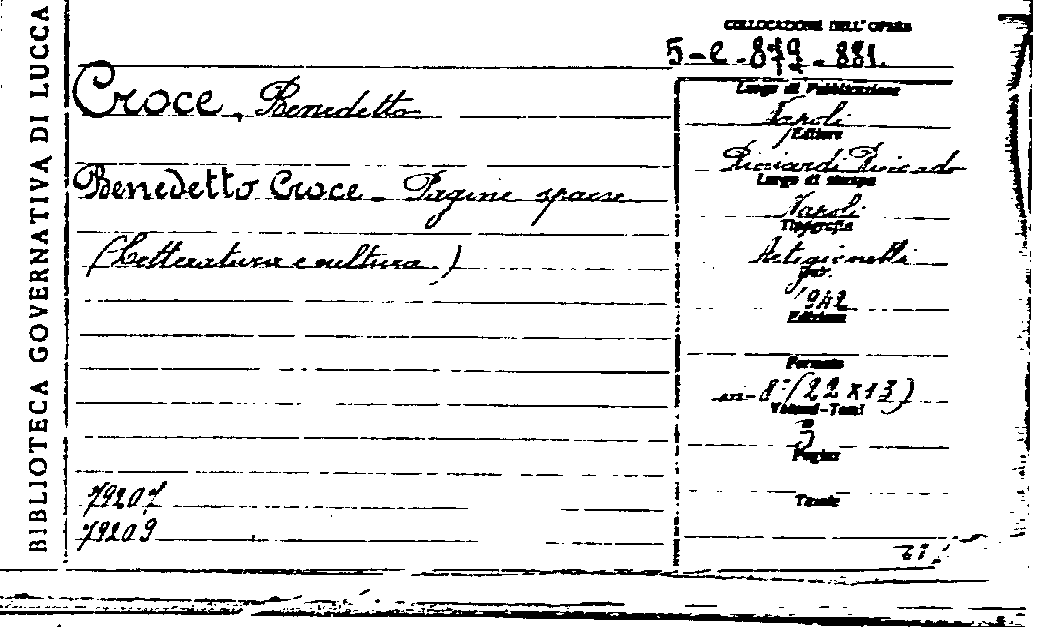 BIBLIOTECA GOVERNATIVA DI LUCCA
COLLOCAZIONE DELL'OPERA
5-e-879-881.
Croce, Benedetto
Benedetto Croce - Pagine sparse
(Letteratura e cultura)
79207
79209
Luogo di Pubblicazione
Napoli
Editore
Ricciardi Riccardo
Luogo di stampa
Napoli
Tipografia
Artigianelli
1942
Edizione
Formato
in-8°(22x13)
Volumi-Tomi
3
Pagine
Tavole